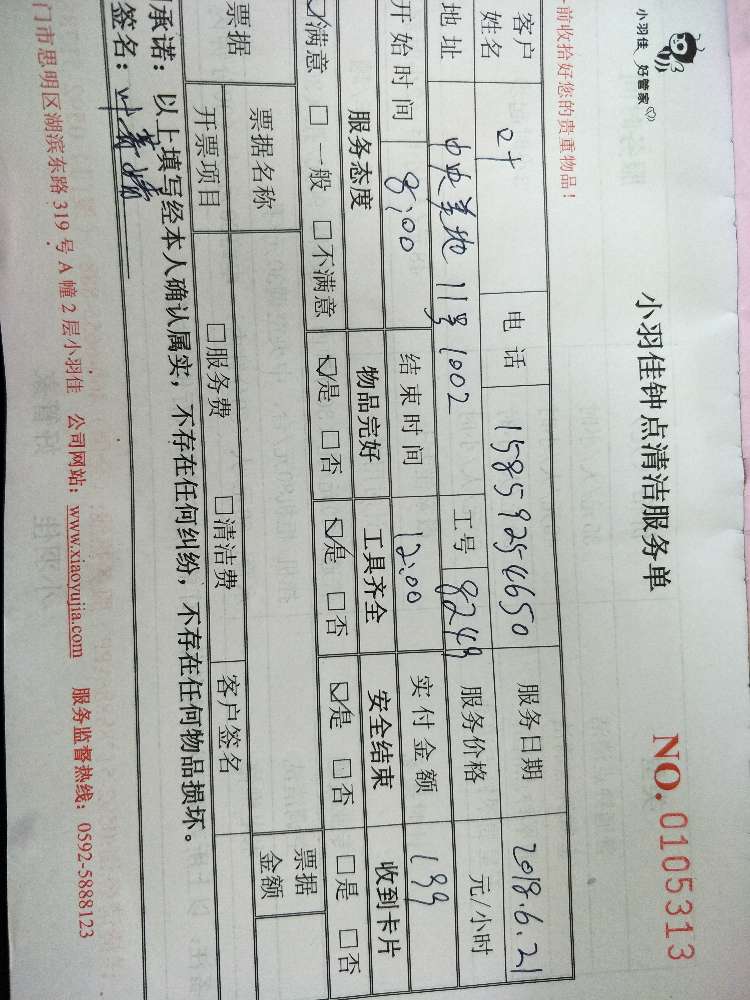 小羽佳 好管家
小羽佳钟点清洁服务单
NO. 0105313
前收拾好您的贵重物品！
客户姓名 叶 电话 15859254650 服务日期 2018.6.21
地址 中央美地 11号1002 工号 8249 服务价格 元/小时
开始时间 8:00 结束时间 12:00 实付金额 199
服务态度 物品完好 工具齐全 安全结束 收到卡片
☑满意 □一般 □不满意 ☑是 □否 ☑是 □否 ☑是 □否 □是 □否
票据 票据名称 票据金额
开票项目 □服务费 □清洁费 客户签名
承诺：以上填写经本人确认属实，不存在任何纠纷，不存在任何物品损坏。
签名：叶
门市思明区湖滨东路319号A幢2层小羽佳 公司网站：www.xiaoyujia.com 服务监督热线：0592-5888123